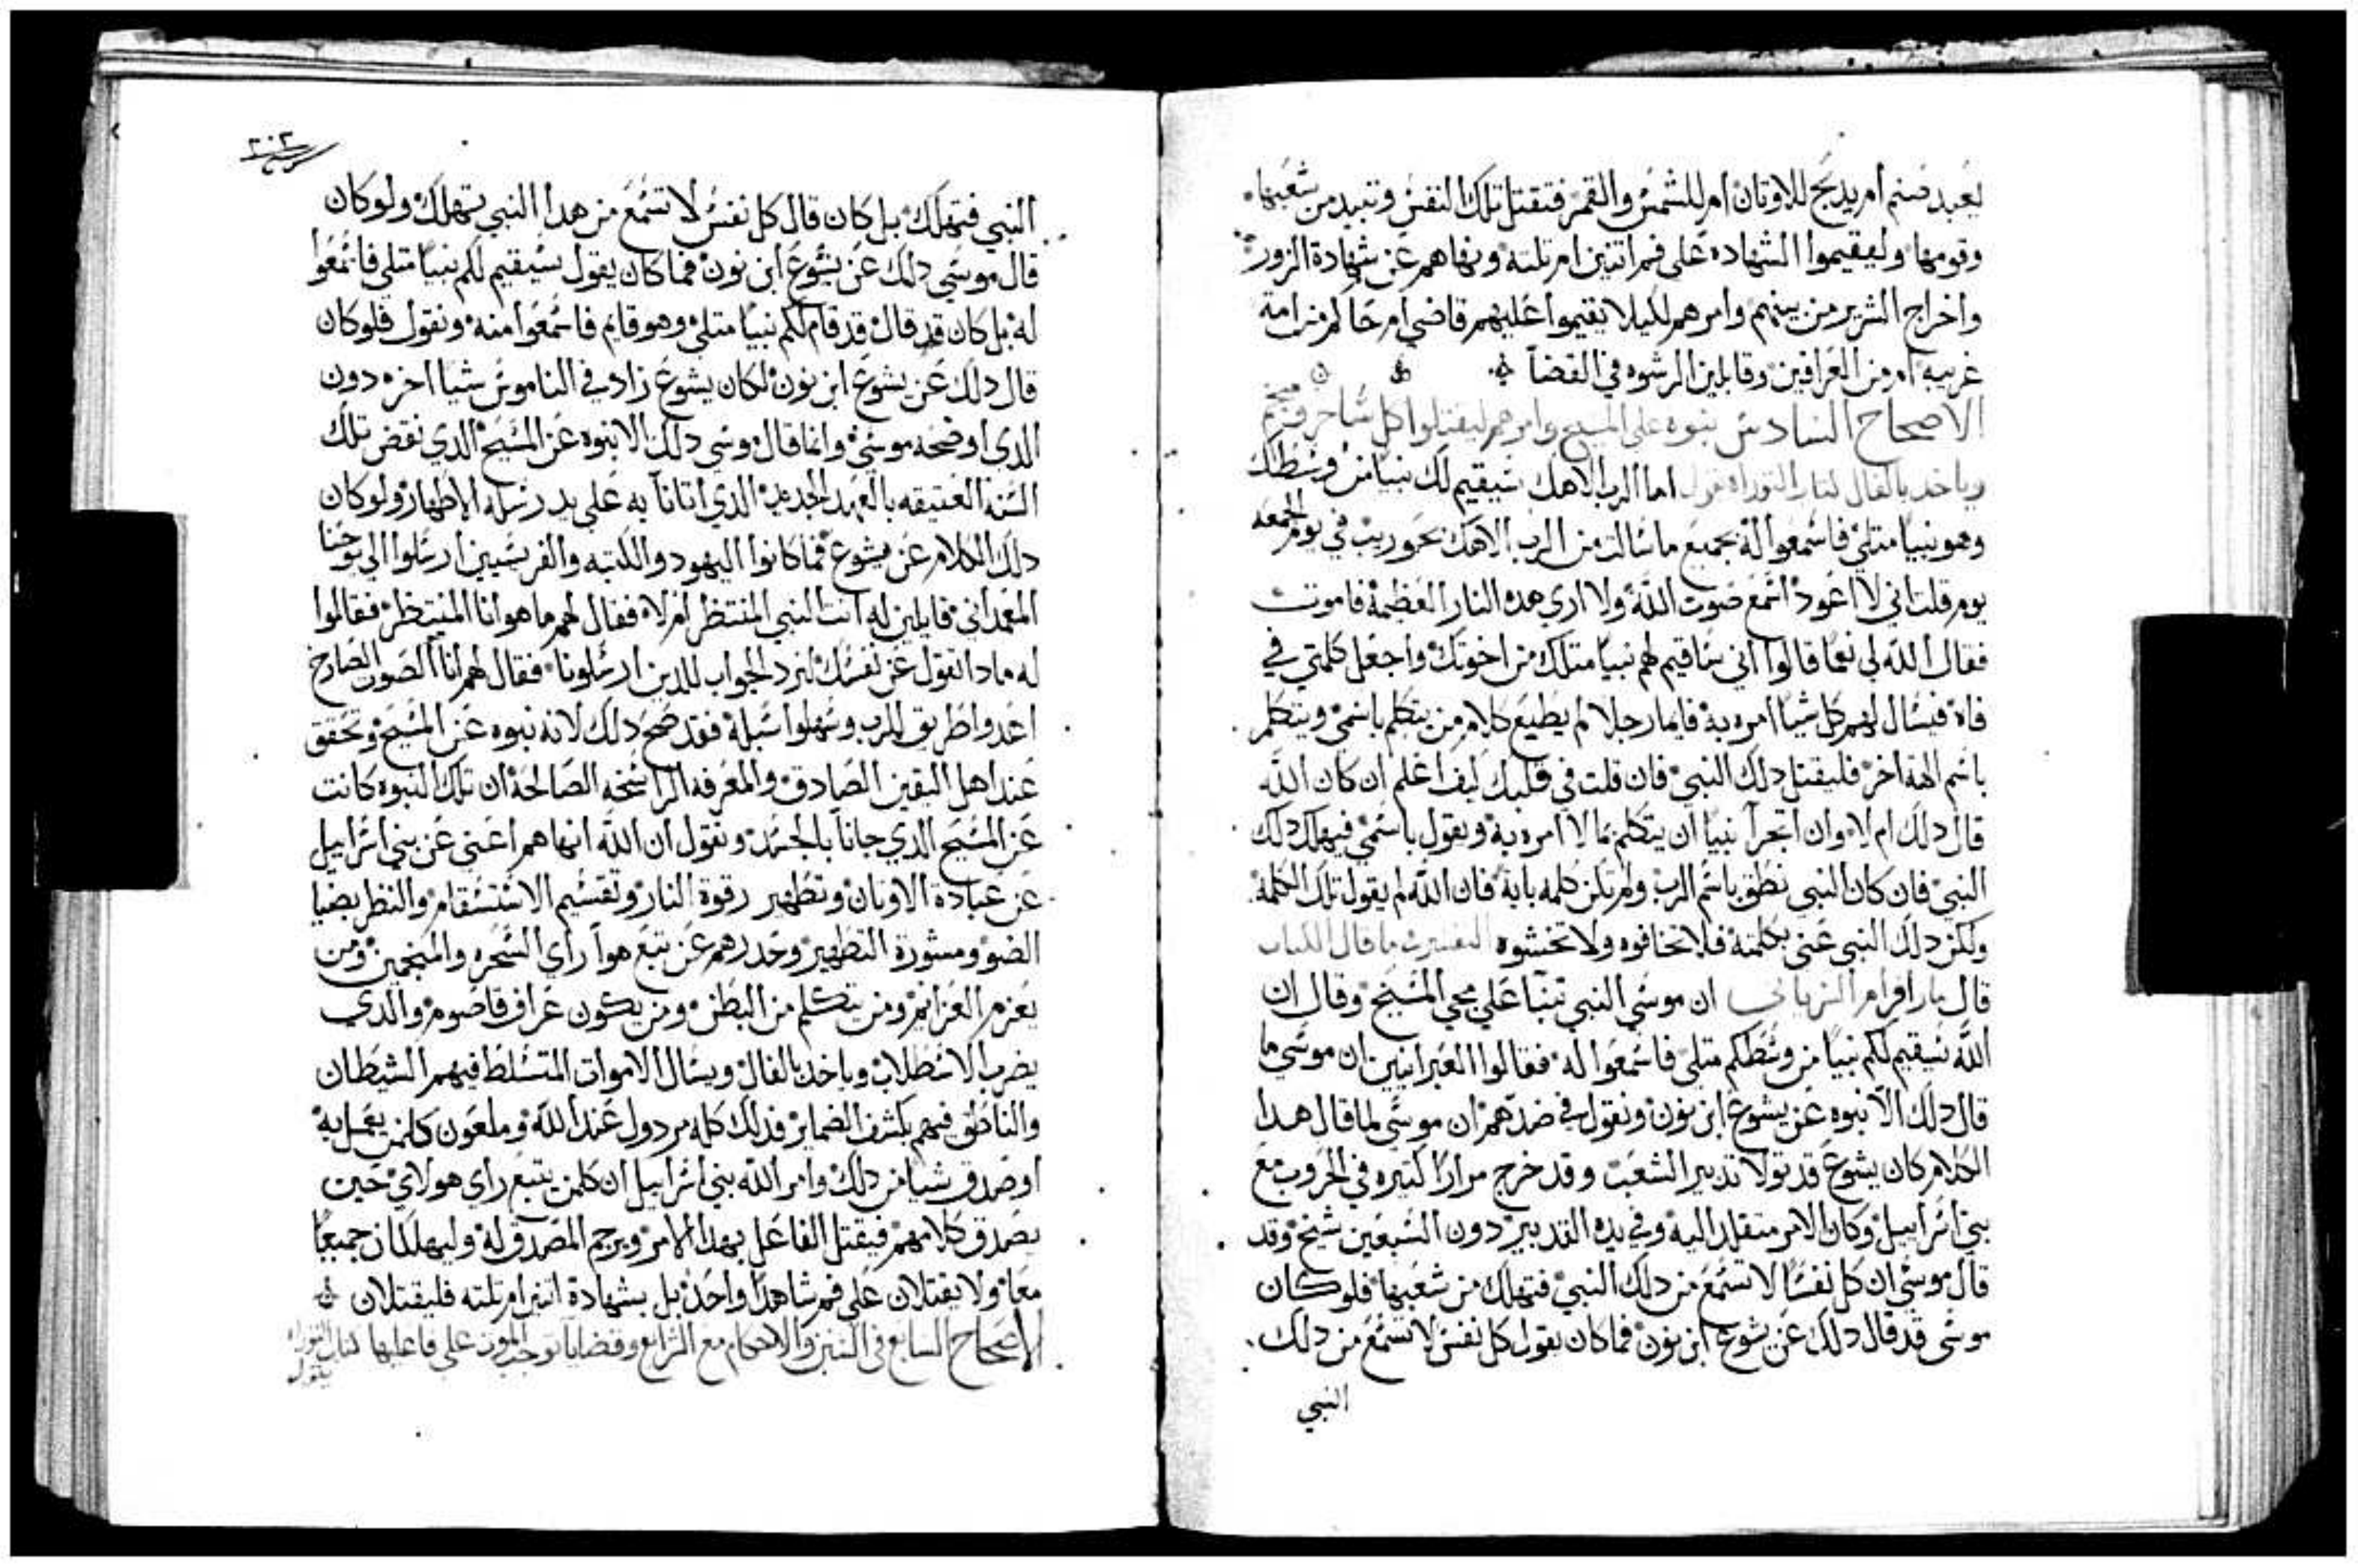 يعبد صنم ام يدبح للاوتان ام للشمس والقمر فتقتل تلك النفس وتبيد من شعبها
وقومها وليقيموا الشهاده على فم اتنين ام تلته ونهاهم عن شهادة الزور
واخراج الشرير من بينهم وامرهم لكيلا يقيموا عليهم قاضي ام حاكم من امة
غريبه ام من العرافين وقابلين الرشوه في القضآ
الاصحاح السادس نبوه على المسيح وامرهم ليقتلوا كل ساحر ومنجم
وياخد بالفال لتاب التوراه يقول اما الرب الاهك سيقيم لك نبيا من وسطك
وهو نبيا متلي فاسمعوا له بجميع ما سالت من الرب الاهك بحوريب في يوم الجمعه
يوم قلت اني لا اعود اسمع صوت الله ولا اري هده النار العظيمة فاموت
فقال الله لي نعما قالوا اني ساقيم لهم نبيا متلك من اخوتك واجعل كلمتي في
فاه فيسال لهم كل شيا امره به فايما رجلا لم يطيع كلام من يتكلم باسمي ويتكلم
باسم الهة اخر فليقتل دلك النبي فان قلت في قلبك كيف اعلم ان كان الله
قال دلك ام لا وان اتجرآ نبيا ان يتكلم بما لا امره به ويقول باسمي فيهلك دلك
النبي فان كان النبي نطق باسم الرب ولم تكن كلمه بابة فان الله لم يقول تلك الكلمة
ولكن دلك النبي عني بكلمته فلا تخافوه ولا تخشوه التفسير ما قال الكتاب
قال مار افرام السرياني ان موسي النبي تنبا على مجي المسيح وقال ان
الله سيقيم لكم نبيا من وسطكم متلي فاسمعوا له فقالوا العبرانيين ان موسي ما
قال دلك الا نبوه عن يشوع ابن نون ونقول في ضدهم ان موسي لما قال هدا
الكلام كان يشوع قد تولا تدبير الشعب وقد خرج مرارا كتيره في الحروب مع
بني اسراييل وكان الامر متقلد اليه وفي يده التدبير دون السبعين شيخ وقد
قال موسي ان كل نفسا لا تسمع من دلك النبي فتهلك من شعبها فلو كان
موسى قد قال دلك عن يشوع ابن نون فما كان يقول كل نفس لا تسمع من دلك
النبي
٢٠٣
النبي فتهلك بل كان قال كل نفس لا تسمع من هدا النبي تهلك ولو كان
قال موسي دلك عن يشوع ابن نون فما كان يقول سيقيم لكم نبيا متلي فاسمعوا
له بل كان قد قال قد قام لكم نبيا متلي وهو قايم فاسمعوا منه ونقول فلو كان
قال دلك عن يشوع ابن نون لكان يشوع زاد في الناموس شيا اخره دون
الدي اوضحه موسي وانما قال موسي دلك الا نبوه عن المسيح الدي نقض تلك
السنة العتيقه بالعهد الجديد الدي اتانا به على يد رسله الاطهار ولو كان
دلك الكلام عن يشوع فما كانوا اليهود والكتبه والفريسيين ارسلوا الي يوحنا
المعمداني قايلين له انت النبي المنتظر ام لا فقال لهم ما هو انا المنتظر فقالوا
له مادا تقول عن نفسك لنرد الجواب للدين ارسلونا فقال لهم انا الصوت الصارخ
اعدوا طريق للرب وسهلوا سبله فقد صح دلك لانه نبوه عن المسيح وتحقق
عند اهل اليقين الصادق والمعرفه الراسخه الصالحة ان تلك النبوه كانت
عن المسيح الدي جانا بالجسد ونقول ان الله انهاهم اعني عن بني اسراييل
عن عبادة الاوتان وتطهير رقوة النار وتقسيم الاستسقام والنظر بضيا
الضو ومشورة التطهير وحدرهم عن تبع هوآ راي السحره والمنجمين ومن
يعزم العزايم ومن يتكلم من البطن ومن يكون عراف قاضوم والدي
يضرب الاسطلاب وياخد بالفال ويسال الاموات المتسلط فيهم الشيطان
والناطق فيهم بكشف الضماير فدلك كله مردول عند الله وملعون كلمن يعمل به
او صدق شيا من دلك وامر الله بني اسراييل ان كلمن يتبع راي هولاي حين
يصدق كلامهم فيقتل الفاعل بهدا الامر ويرجم المصدق له وليهلكان جميعا
معا ولا يقتلان على فم شاهدا واحد بل بشهادة اتنين ام تلته فليقتلان
الاصحاح السابع في السنن والاحكام مع الشرايع وقضايا توجب الموت على فاعلها كتاب التوراه
يقول